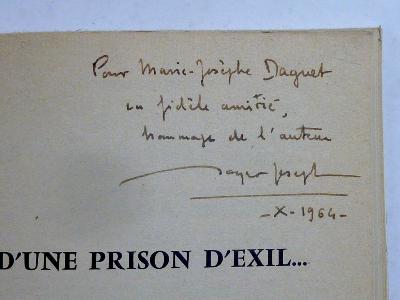 Pour Marie-Josèphe Daguet
en fidèle amitié,
hommage de l'auteur
Roger Joseph
-X-1964-
D'UNE PRISON D'EXIL...